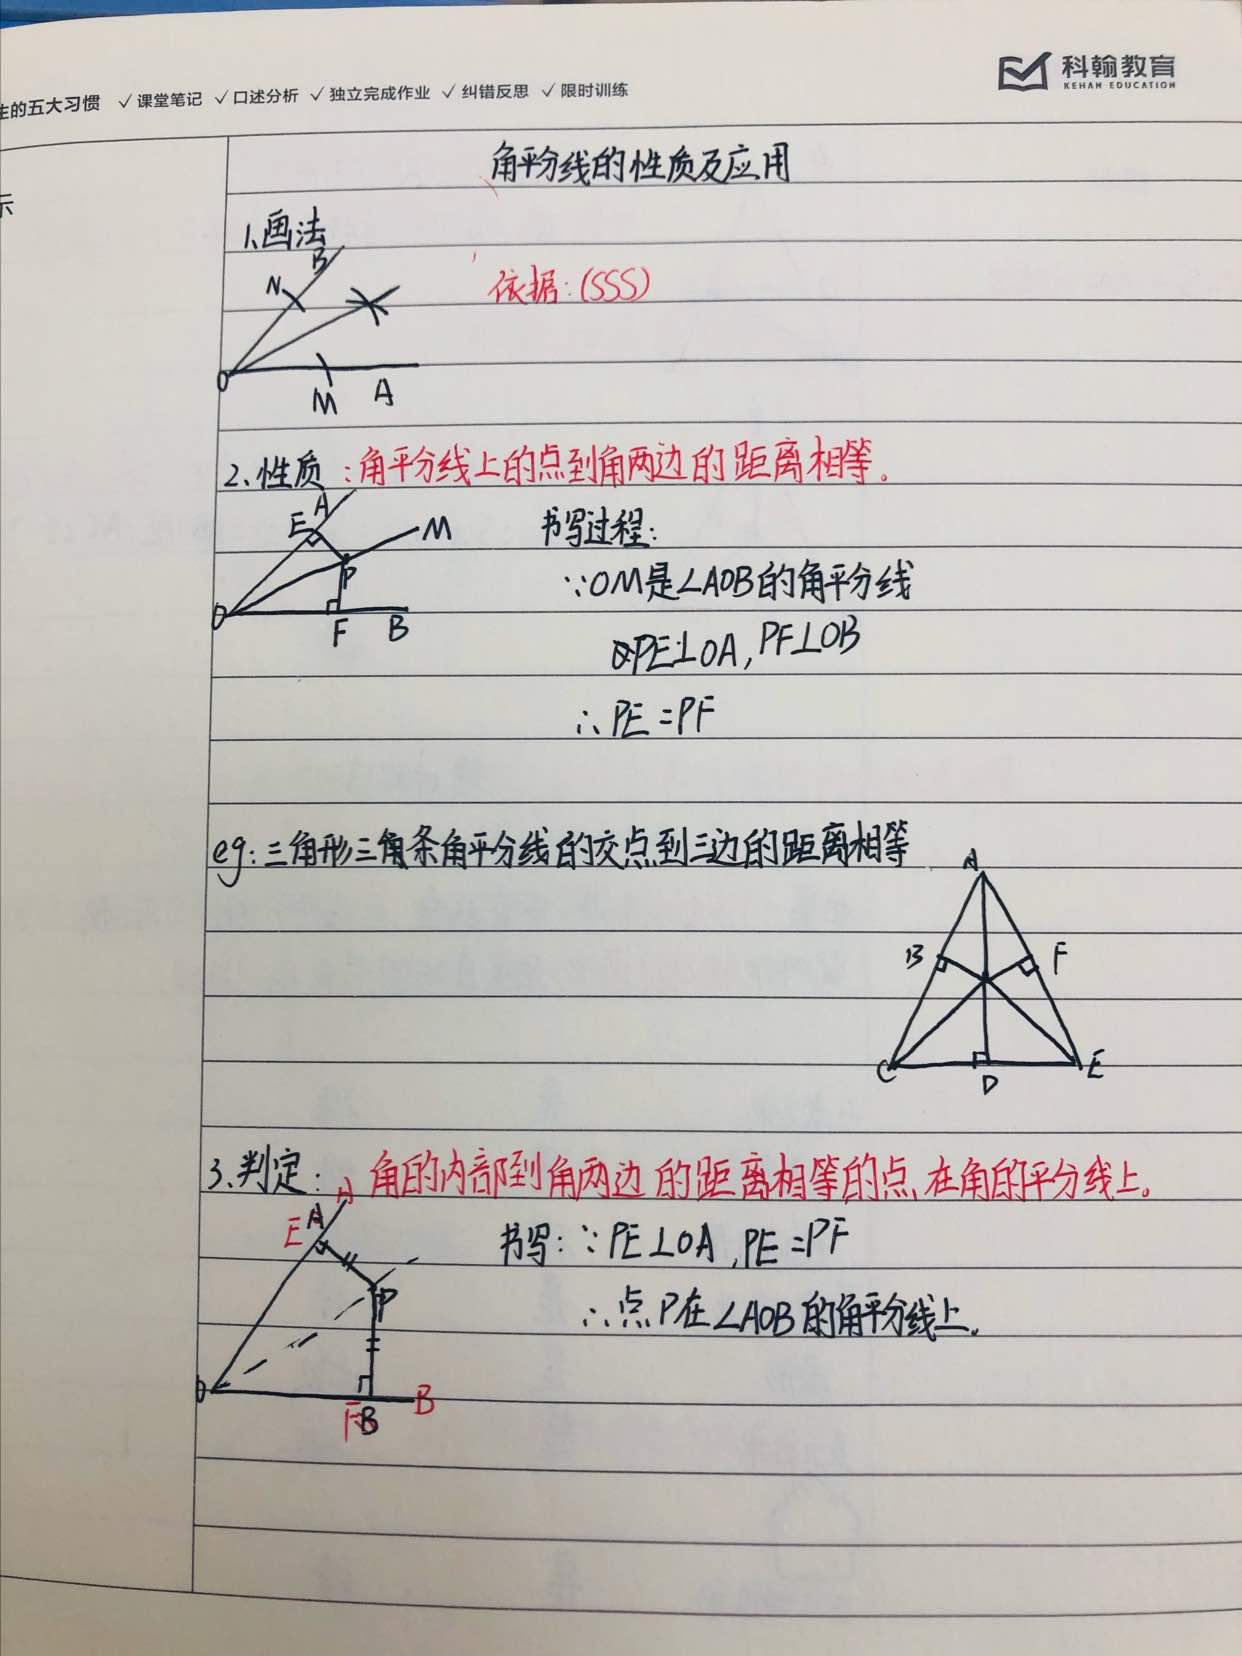 生的五大习惯 ✓课堂笔记 ✓口述分析 ✓独立完成作业 ✓纠错反思 ✓限时训练
科翰教育
KEHAN EDUCATION
示
角平分线的性质及应用
1、画法
B
N
依据：(SSS)
O
M A
2、性质：角平分线上的点到角两边的距离相等。
E A
M
书写过程：
P
∵OM是∠AOB的角平分线
O
F B
PE⊥OA，PF⊥OB
∴PE=PF
eg：三角形三条角平分线的交点到三边的距离相等
A
B F
C D E
3、判定：角的内部到角两边的距离相等的点，在角的平分线上。
A
E A
书写：∵PE⊥OA，PE=PF
P
∴点P在∠AOB的角平分线上。
O
F B B